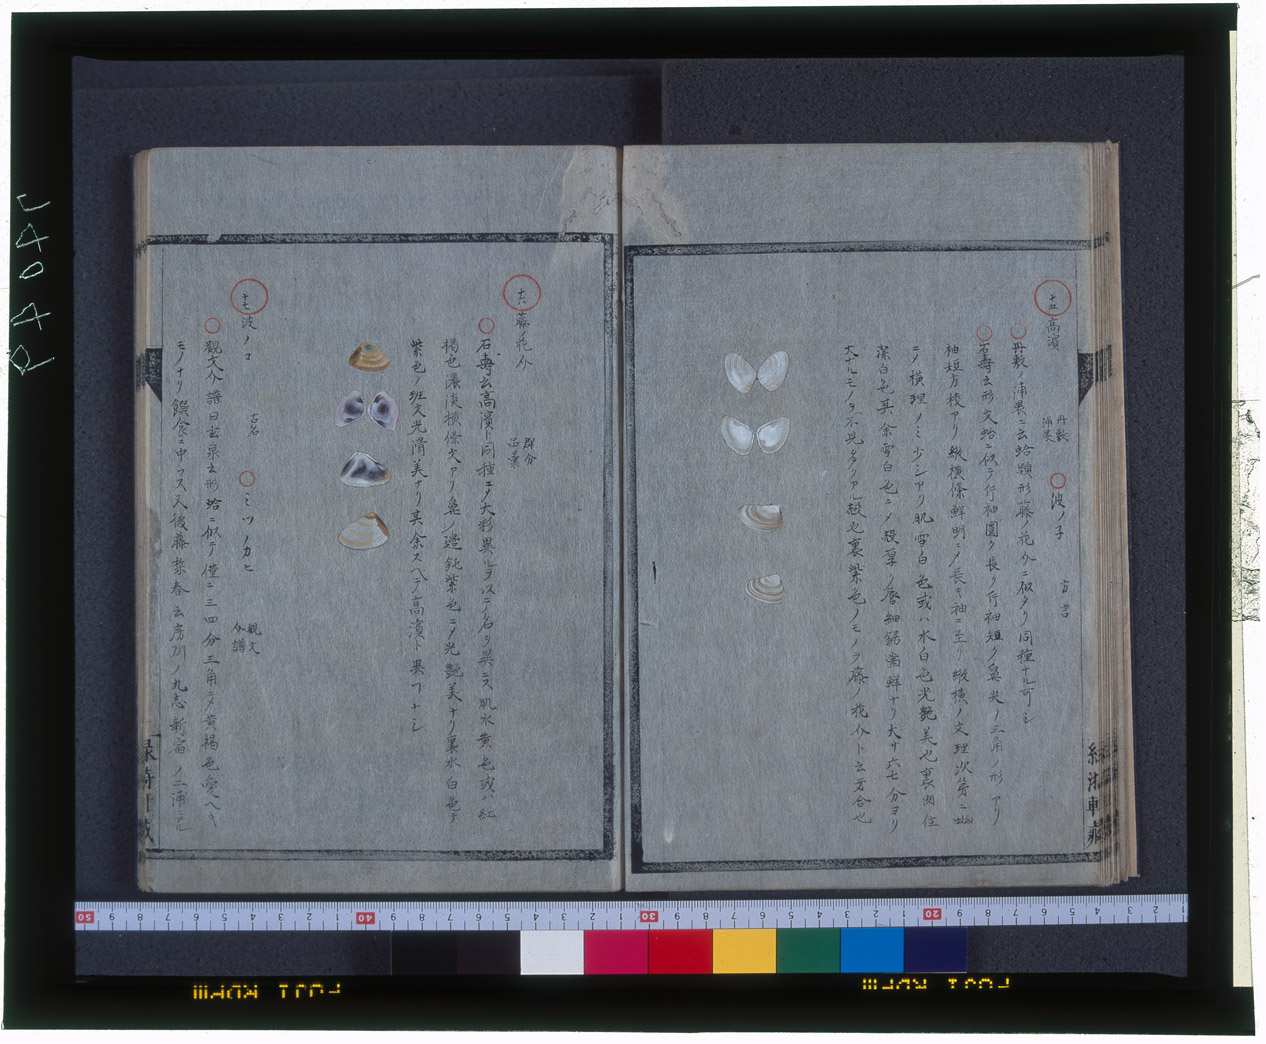 十五 高濱 丹敷浦裏 〇波ノ子 方言
〇丹敷ノ浦裏ニ云蛤類形藤ノ花介ニ似タリ同種ナル可シ
〇石壽云形文蛤ニ似テ行袖圓ク長ク行袖短ク鼻尖ノ三角ノ形アリ
袖短方稜アリ縦横條鮮明ニメ長キ袖ニ至リ縦横ノ文理次第ニ
ニメ横理ノミ少シアリ肌雪白色或ハ水白色光艶美也裏
潔白色其余雪白也ニメ殻薄ク唇細鋸歯鮮ナリ大サ六七分ヨリ
大ナルモノヲ不見多クアル殻也裏紫色ノモノヲ藤ノ花介ト云
十六 藤ノ花介 群分品彙
〇石壽云高濱ト同種ニメ大彩異ルヲ以テ名ヲ異ニス肌水黄色或ハ紅
褐色濃淡横條文アリ鼻ノ邉鈍紫色ニメ光艶美ナリ裏水白色ヲ
紫色ノ班文光滑美ナリ其余スヘテ高濱ト異コトナシ
十七 波ノコ 古名 〇ミツノカヒ 観文介譜
〇観文介譜曰玄泉云形蛤ニ似テ僅ニ三四分三角ニメ黄褐色愛ヘキ
モノナリ饌食ニ中ツス又後藤梨春云房州ノ九志新宿ノ二浦
緑漪軒蔵